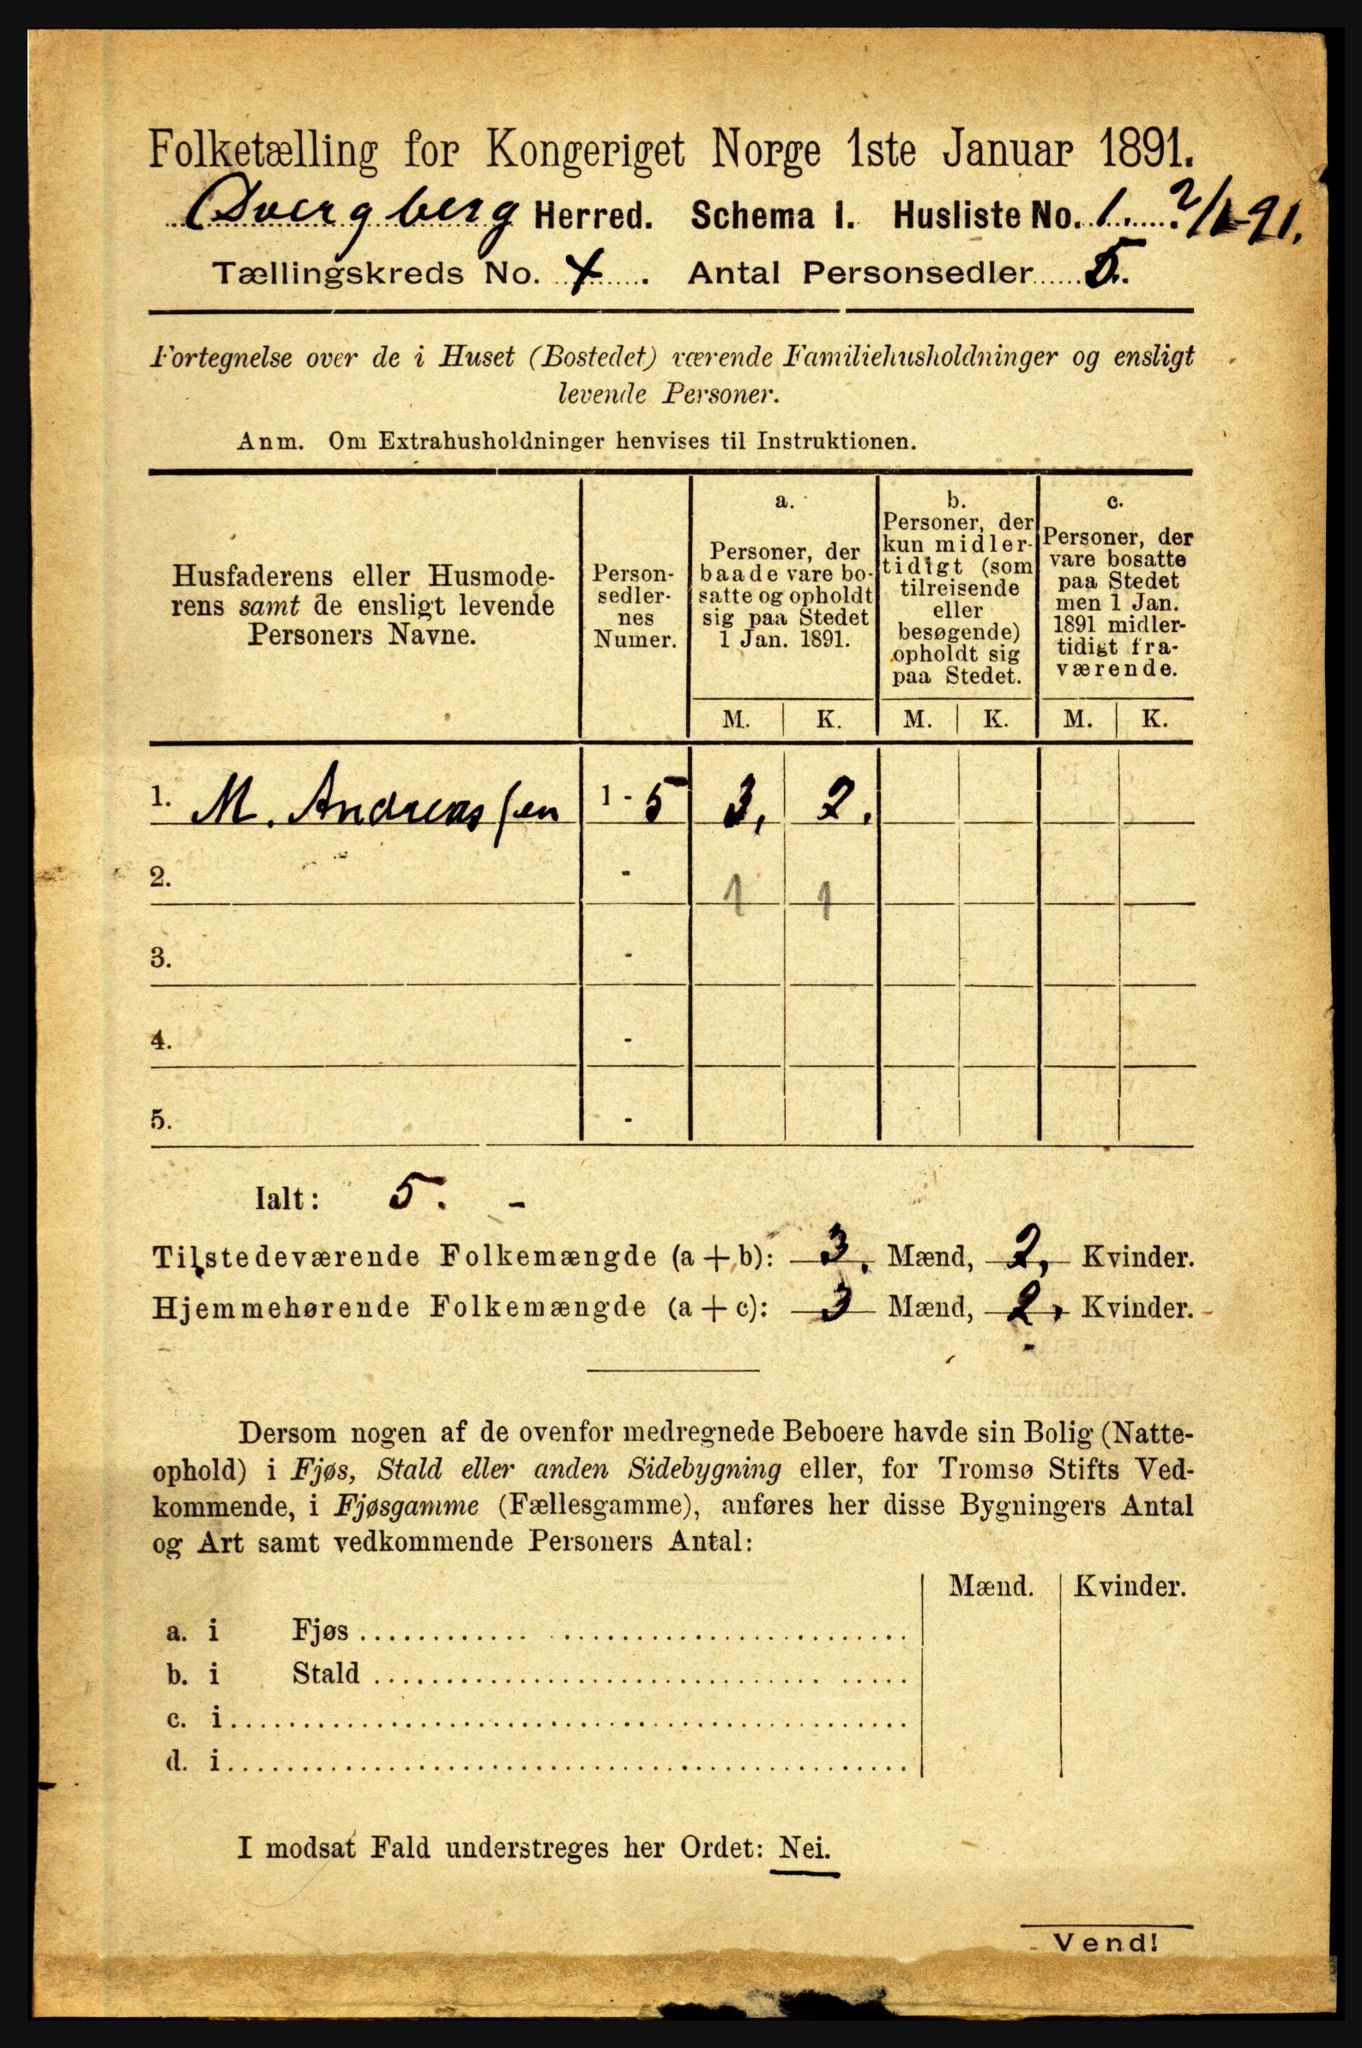 Folketælling for Kongeriget Norge 1ste Januar 1891.
Dvergberg Herred. Schema I. Husliste No. 1. 2/1-91.
Tællingskreds No. 4. Antal Personsedler 5.
Fortegnelse over de i Huset (Bostedet) værende Familiehusholdninger og ensligt
levende Personer.
Anm. Om Extrahusholdninger henvises til Instruktionen.
Husfaderens eller Husmode-
rens samt de ensligt levende
Personers Navne.
Person-
sedler-
nes
Numer.
a.
Personer, der
baade vare bo-
satte og opholdt
sig paa Stedet
1 Jan. 1891.
b.
Personer, der
kun midler-
tidigt (som
tilreisende
eller
besøgende)
opholdt sig
paa Stedet.
c.
Personer, der
vare bosatte
paa Stedet
men 1 Jan.
1891 midler-
tidigt fra-
værende.
M. K. M. K. M. K.
1. M. Andreassen 1 - 5 3, 2.
2. - 1 1
3. -
4. -
5. -
Ialt: 5. -
Tilstedeværende Folkemængde (a + b): 3, Mænd, 2, Kvinder.
Hjemmehørende Folkemængde (a + c): 3 Mænd, 2, Kvinder.
Dersom nogen af de ovenfor medregnede Beboere havde sin Bolig (Natte-
ophold) i Fjøs, Stald eller anden Sidebygning eller, for Tromsø Stifts Ved-
kommende, i Fjøsgamme (Fællesgamme), anføres her disse Bygningers Antal
og Art samt vedkommende Personers Antal:
Mænd. Kvinder.
a. i Fjøs
b. i Stald
c. i
d. i
I modsat Fald understreges her Ordet: Nei.
Vend!